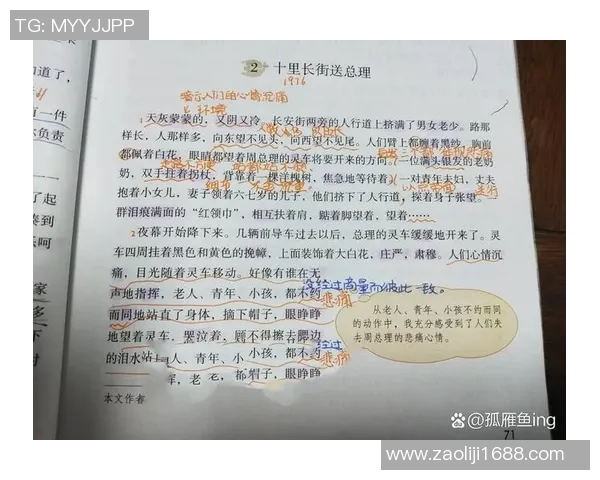 TG: MYYJJPP
2 十里长街送总理
1976
暗示人们的心情沉痛
环境
天灰蒙蒙的，又阴又冷。长安街两旁的人行道上挤满了男女老少。路那
样长，人那样多，向东望不见头，向西望不见尾。人们臂上都缠着黑纱，胸前
都佩着白花，眼睛都望着周总理的灵车将要开来的方向。一位满头银发的老奶
奶，双手拄着拐杖，背靠着一棵洋槐树，焦急地等待着。一对青年夫妇，丈夫
抱着小女儿，妻子领着六七岁的儿子，他们挤下了人行道，探着身子张望。
群泪痕满面的“红领巾”，相互扶着肩，踮着脚望着，望着……
夜幕开始降下来。几辆前导车过去以后，总理的灵车缓缓地开来了。灵
车四周挂着黑色和黄色的挽幛，上面装饰着大白花，庄严，肃穆。人们心情沉
痛，目光随着灵车移动。好像有谁在无
没经过商量而彼此一致。
声地指挥，老人、青年、小孩，都不约
悲痛
而同地站直了身体，摘下帽子，眼睁睁
地望着灵车，哭泣着，顾不得擦去腮边
经过
的泪水站 人、青年、小 小孩，都不约
悲痛
老 帽子，眼睁睁
本文作者
从老人、青年、小孩不约而同
的动作中，我充分感受到了人们失
去周总理的悲痛心情。
道了，
有一件
负责
了起
71
孤雁鱼ing
www.zaoliji1688.com